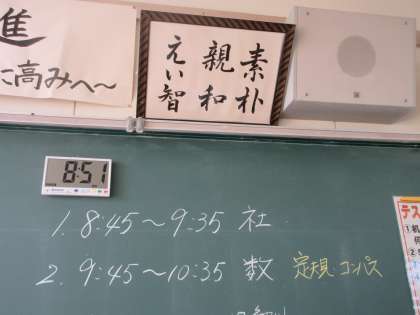 進
に高みへ〜
素朴
親和
えい智
8:51
1. 8:45〜9:35 社
2. 9:45〜10:35 数 定規・コンパス
テス